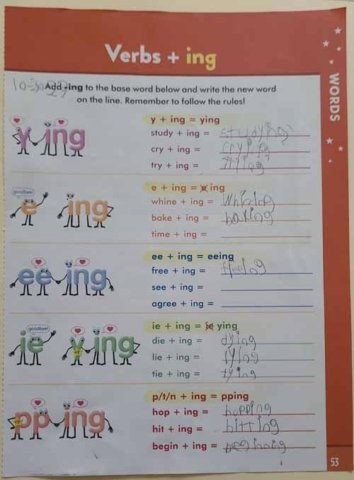 Verbs + ing
WORDS
Add -ing to the base word below and write the new word
on the line. Remember to follow the rules!
y ing
y + ing = ying
study + ing = studying
cry + ing = crying
try + ing = trying
goodbye!
e ing
e + ing = e ing
whine + ing = whining
bake + ing = baking
time + ing =
ee ing
ee + ing = eeing
free + ing =
see + ing =
agree + ing =
goodbye!
ie y ing
ie + ing = ie ying
die + ing = dying
lie + ing = lying
tie + ing = tying
pp ing
p/t/n + ing = pping
hop + ing = hopping
hit + ing = hitting
begin + ing =
53